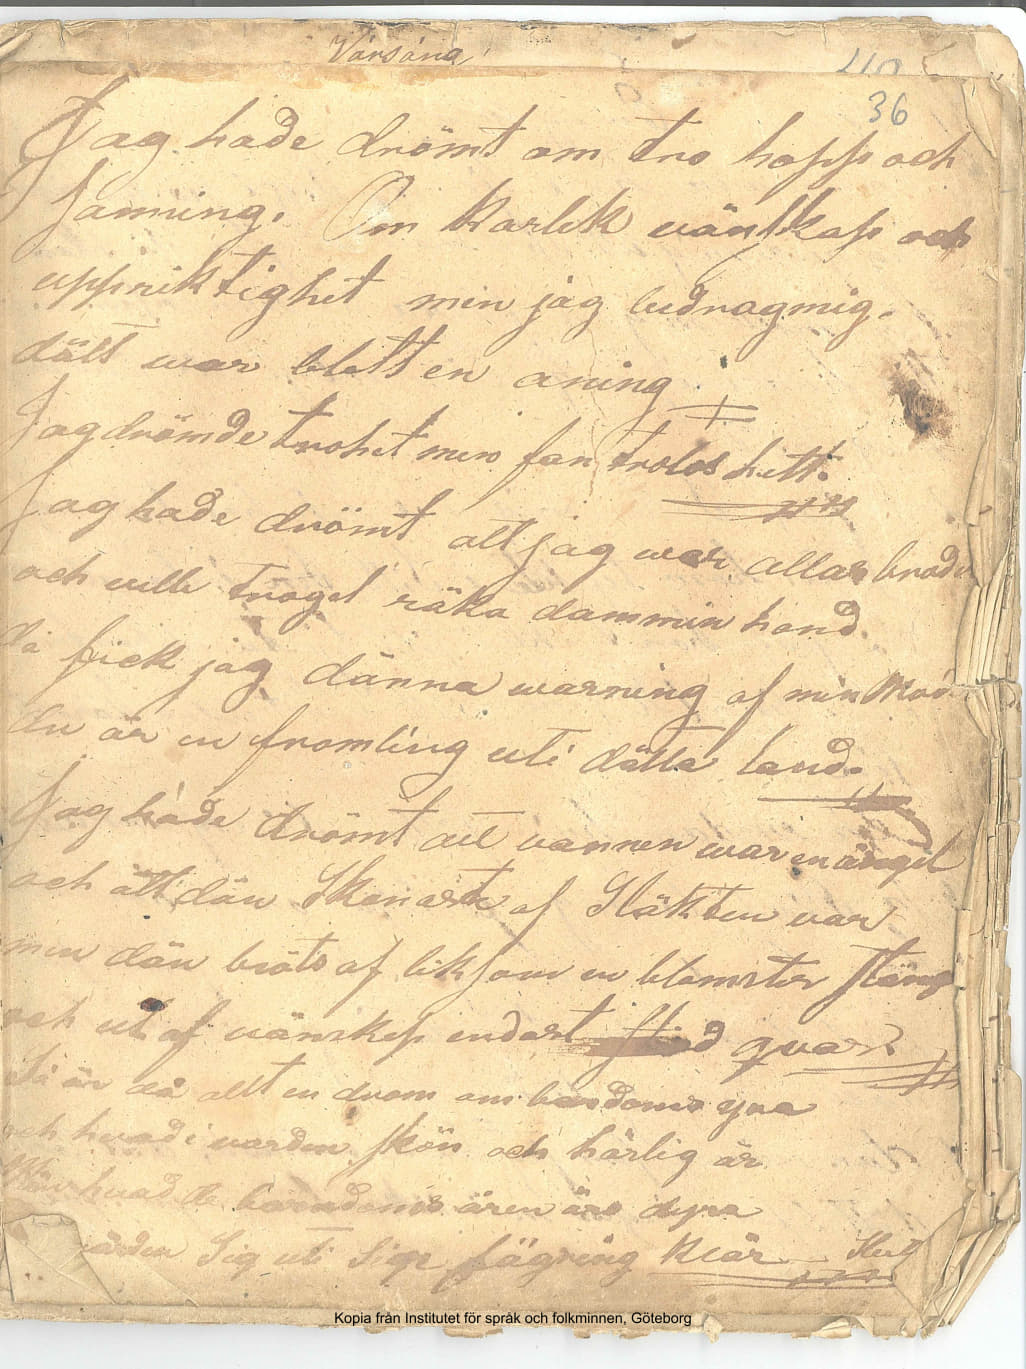 Vårsång
40
36
Jag hade drömt om tro hopp och
saning. Om karlek vänskap och
uppriktighet min jag bedrag mig.
dätt war blått en aning
Jag drömde trohet men fan trolos hett.
Jag hade drömt att jag war allas broder
och ville troget räka dam min hand
då fick jag dänna warning af min Mod
du är en fromling uti dätta land.
Jag hade drömt att vannen war en ängel
och ätt dän Skonaste af Släkten var
men dän bröts af liksom en blomster stäng
och ut af vänskap endast stod qvar.
Så är då allt en drom om bardoms yra
och hvad i varden skön och härlig är
hvad de barndoms åren äro dyra
värden Sig uti Sin fägring klär Slut
Kopia från Institutet för språk och folkminnen, Göteborg